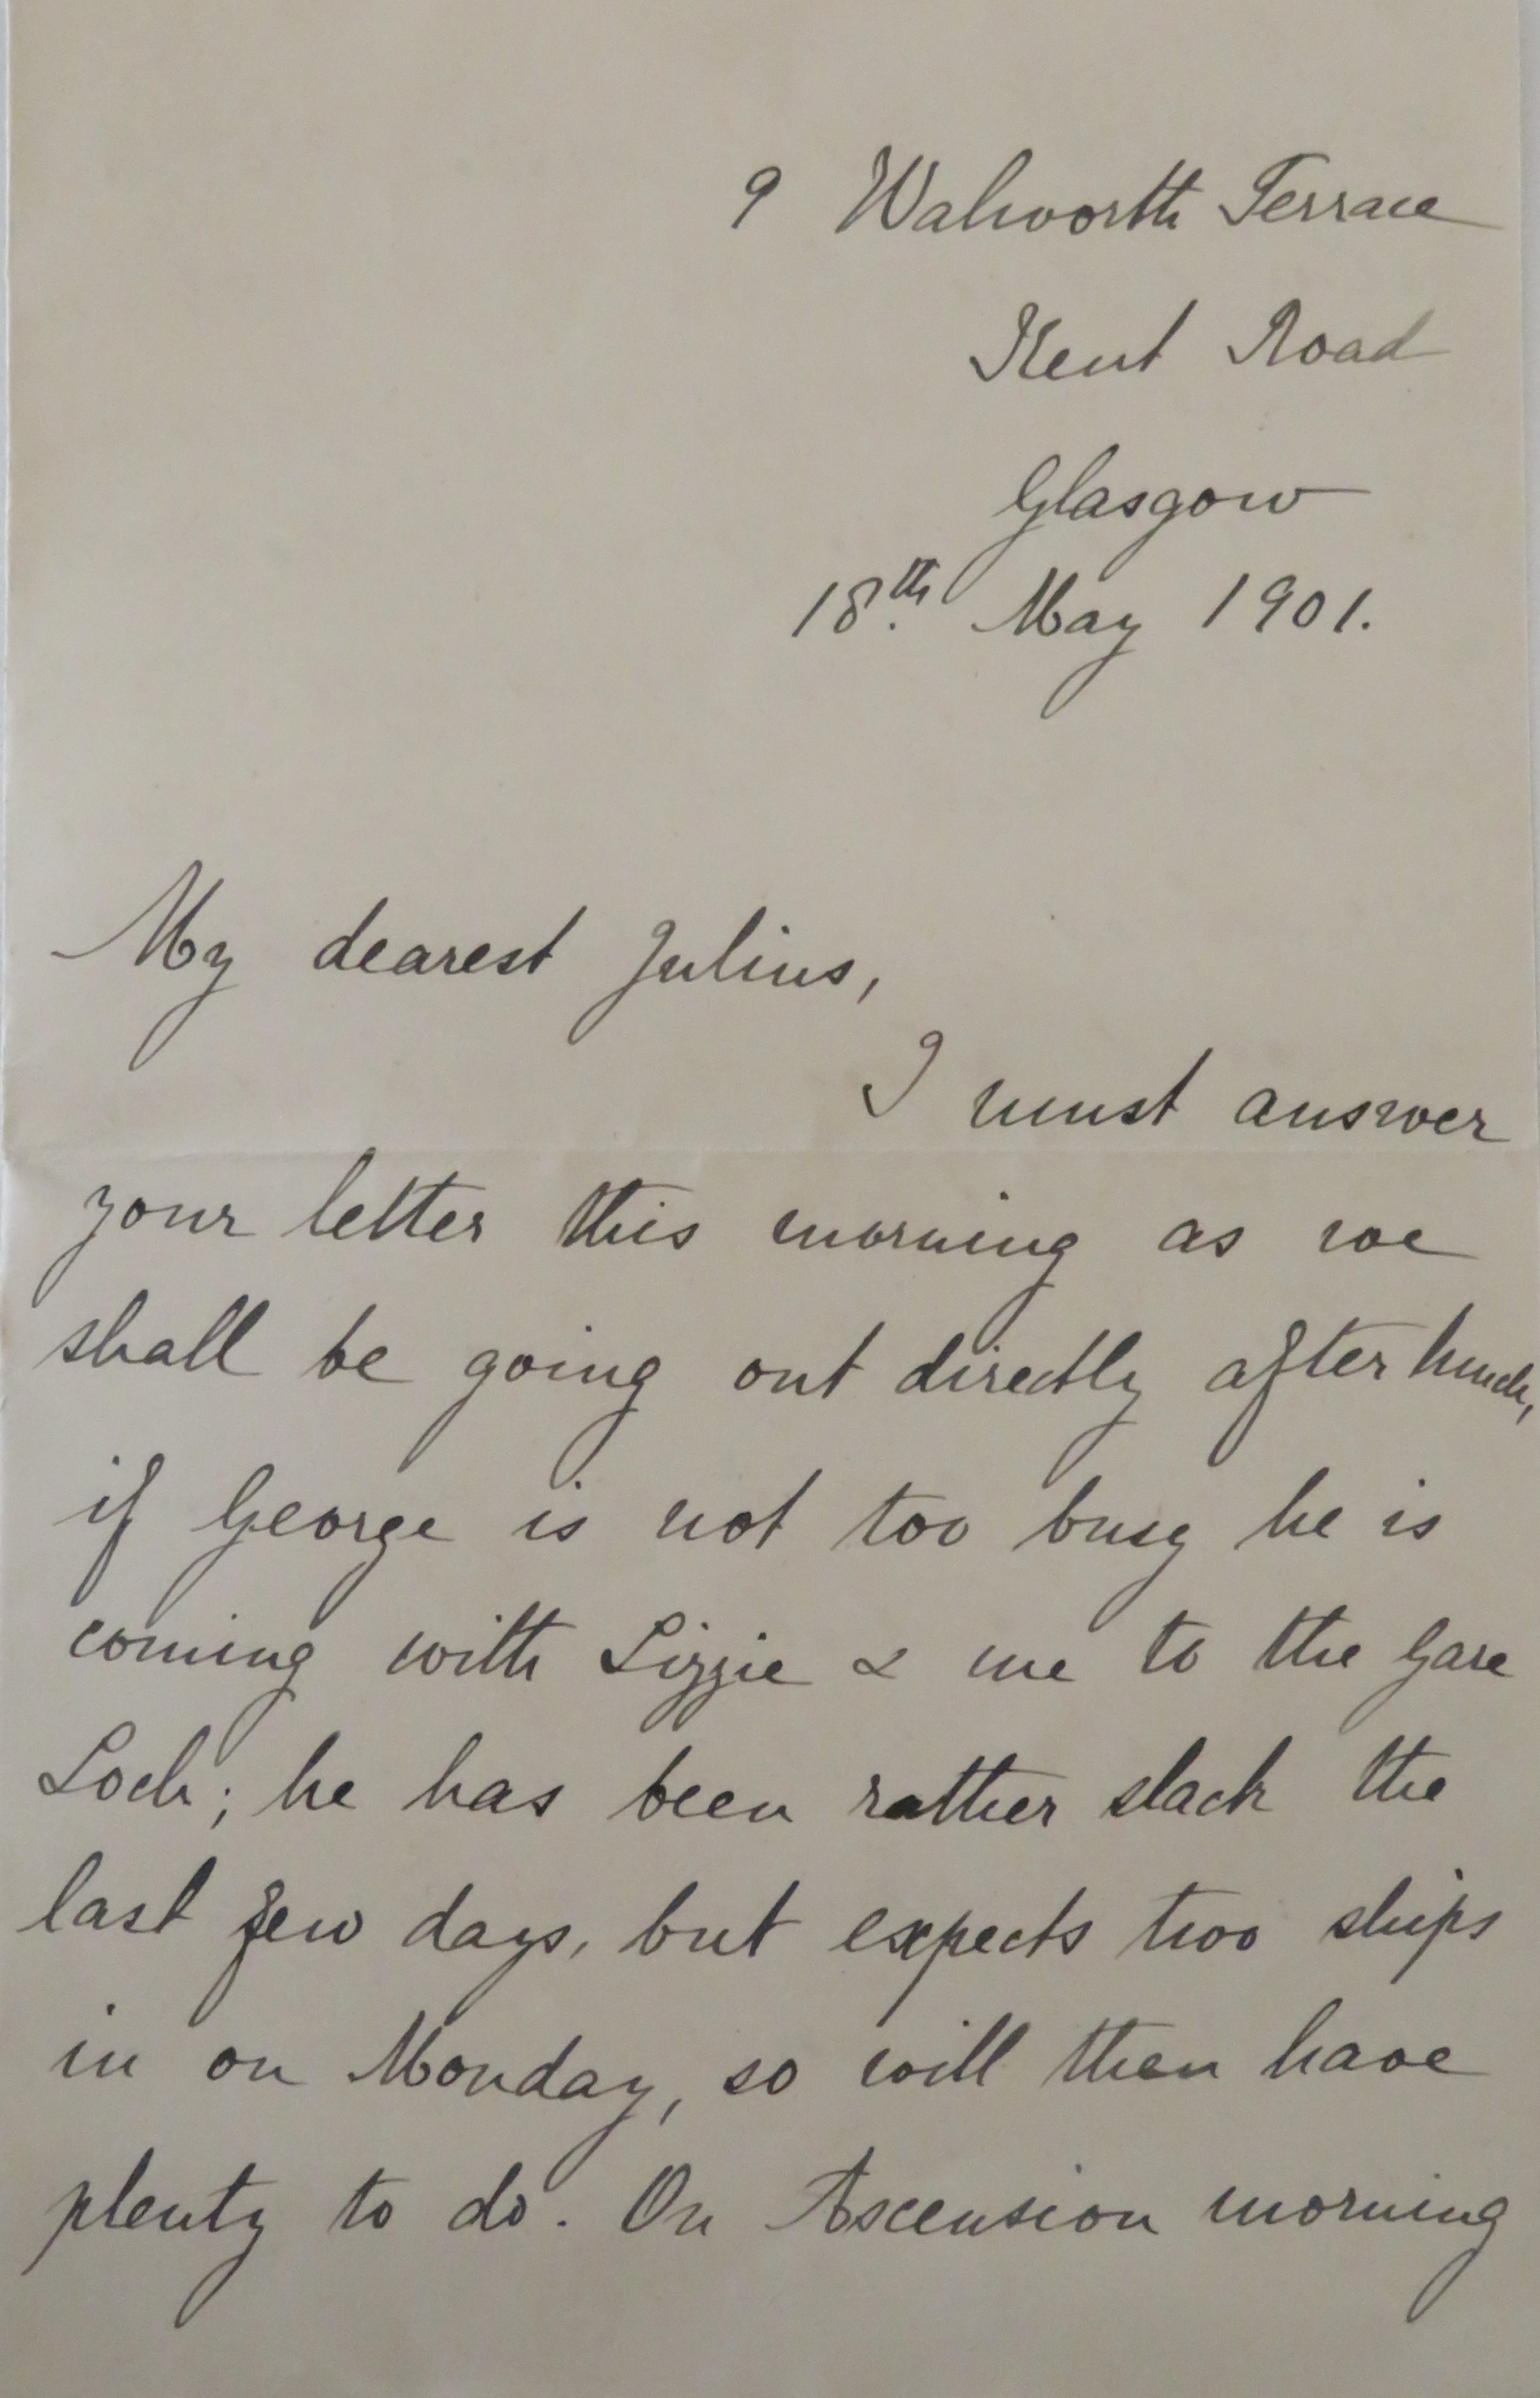 9 Walworth Terrace
Kent Road
Glasgow
18th. May 1901.
My dearest Julius,
I must answer
your letter this morning as we
shall be going out directly after lunch,
if George is not too busy he is
coming with Lizzie & me to the Gare
Loch; he has been rather slack the
last few days, but expects two ships
in on Monday, so will then have
plenty to do. On Ascension morning